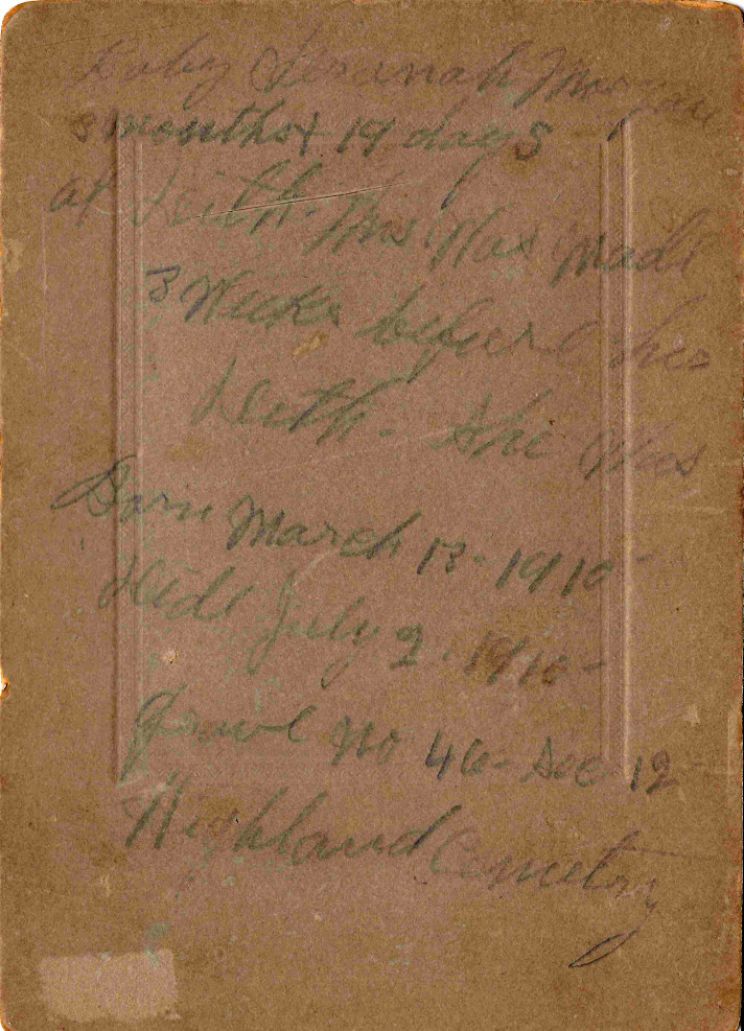 Baby Susanah Morgan
3 months & 19 days
at Deith. this Was Made
3 Weeks before her
Deith. She Was
Born March 13-1910-
Died July 2. 1910-
Grave No 46- Sec-12
Highland Cemetry